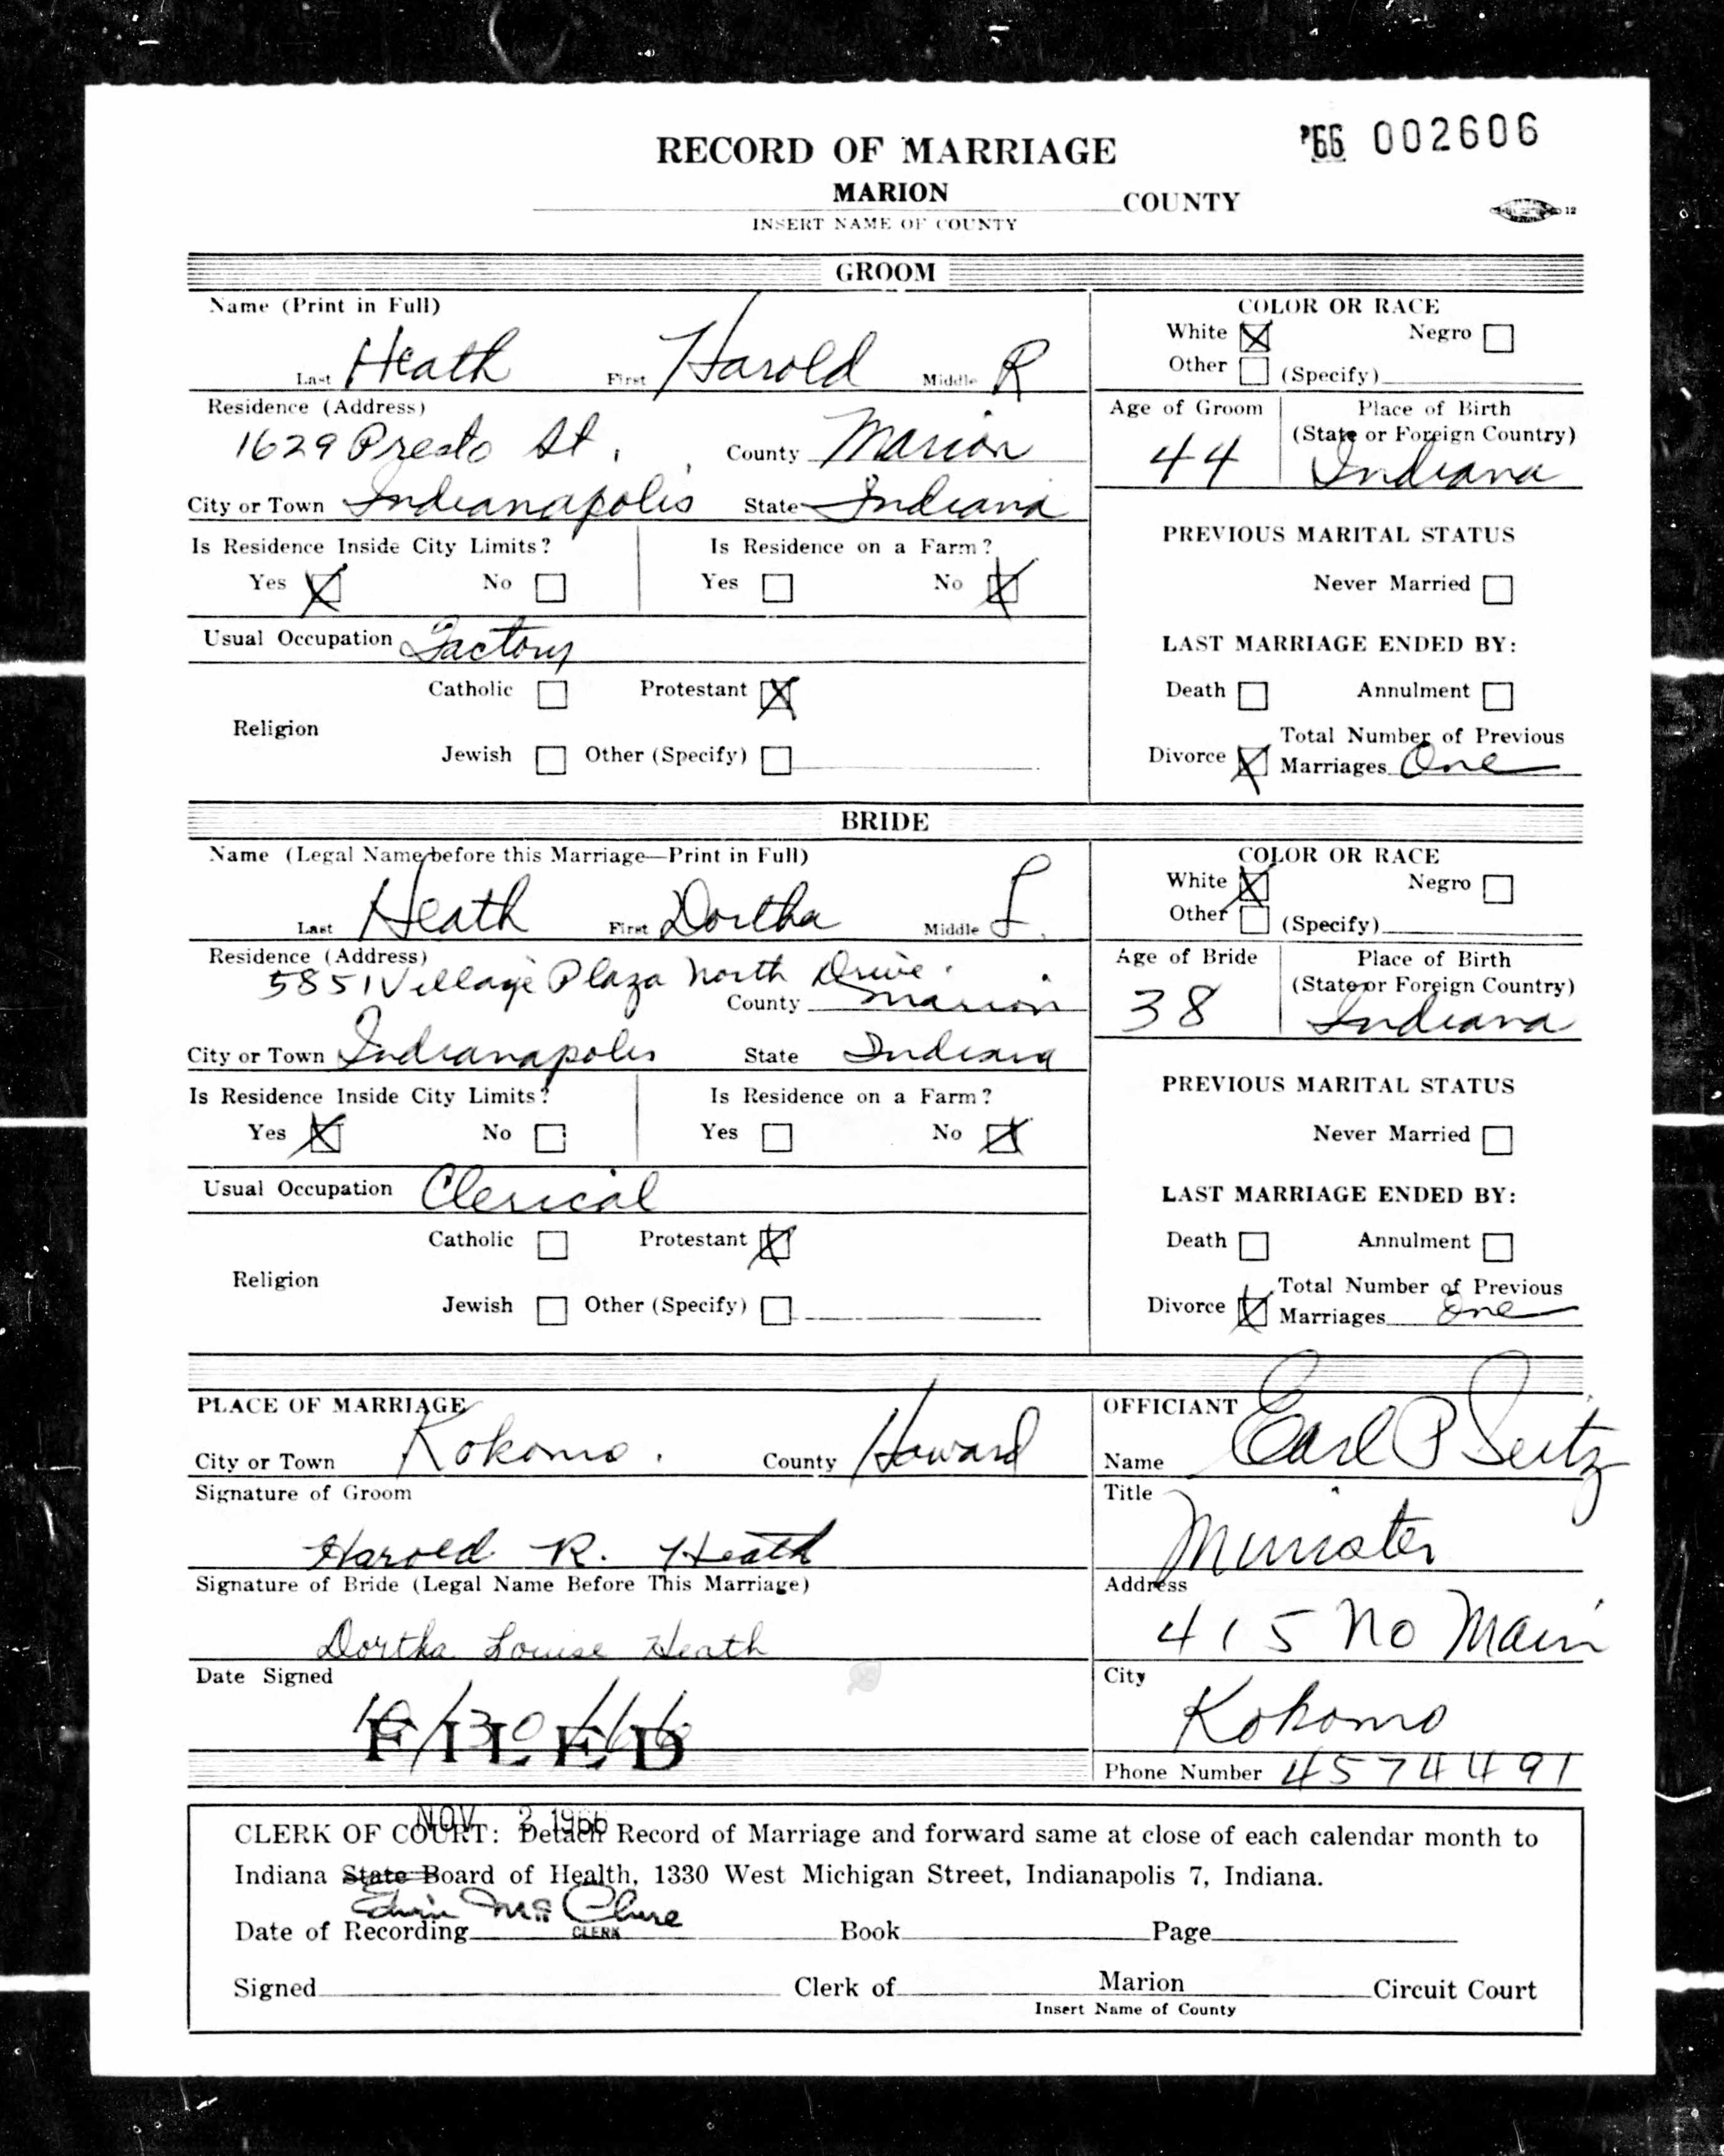 '66 002606
RECORD OF MARRIAGE
MARION COUNTY
INSERT NAME OF COUNTY
12
GROOM
Name (Print in Full)
Last Heath First Harold Middle R
COLOR OR RACE
White Negro
Other (Specify)
Residence (Address)
1629 Presto St., County Marion
City or Town Indianapolis State Indiana
Age of Groom 44
Place of Birth
(State or Foreign Country)
Indiana
Is Residence Inside City Limits? Is Residence on a Farm?
Yes X No Yes No X
PREVIOUS MARITAL STATUS
Never Married
Usual Occupation Factory
LAST MARRIAGE ENDED BY:
Catholic Protestant X
Religion
Jewish Other (Specify)
Death Annulment
Divorce X Total Number of Previous
Marriages One
BRIDE
Name (Legal Name before this Marriage—Print in Full)
Last Heath First Dortha Middle L.
COLOR OR RACE
White X Negro
Other (Specify)
Residence (Address)
5851 Village Plaza North Drive.
County Marion
City or Town Indianapolis State Indiana
Age of Bride 38
Place of Birth
(State or Foreign Country)
Indiana
Is Residence Inside City Limits? Is Residence on a Farm?
Yes X No Yes No X
PREVIOUS MARITAL STATUS
Never Married
Usual Occupation Clerical
LAST MARRIAGE ENDED BY:
Catholic Protestant X
Religion
Jewish Other (Specify)
Death Annulment
Divorce X Total Number of Previous
Marriages One
PLACE OF MARRIAGE
City or Town Kokomo. County Howard
OFFICIANT
Name Earl P Seitz
Signature of Groom
Harold R. Heath
Title
Minister
Signature of Bride (Legal Name Before This Marriage)
Dortha Louise Heath
Address
415 No Main
Date Signed
10/30/66
FILED
City
Kokomo
Phone Number 4574491
NOV 2 1966
CLERK OF COURT: Detach Record of Marriage and forward same at close of each calendar month to
Indiana State Board of Health, 1330 West Michigan Street, Indianapolis 7, Indiana.
Edwin McClure
CLERK
Date of Recording Book Page
Signed Clerk of Marion Circuit Court
Insert Name of County